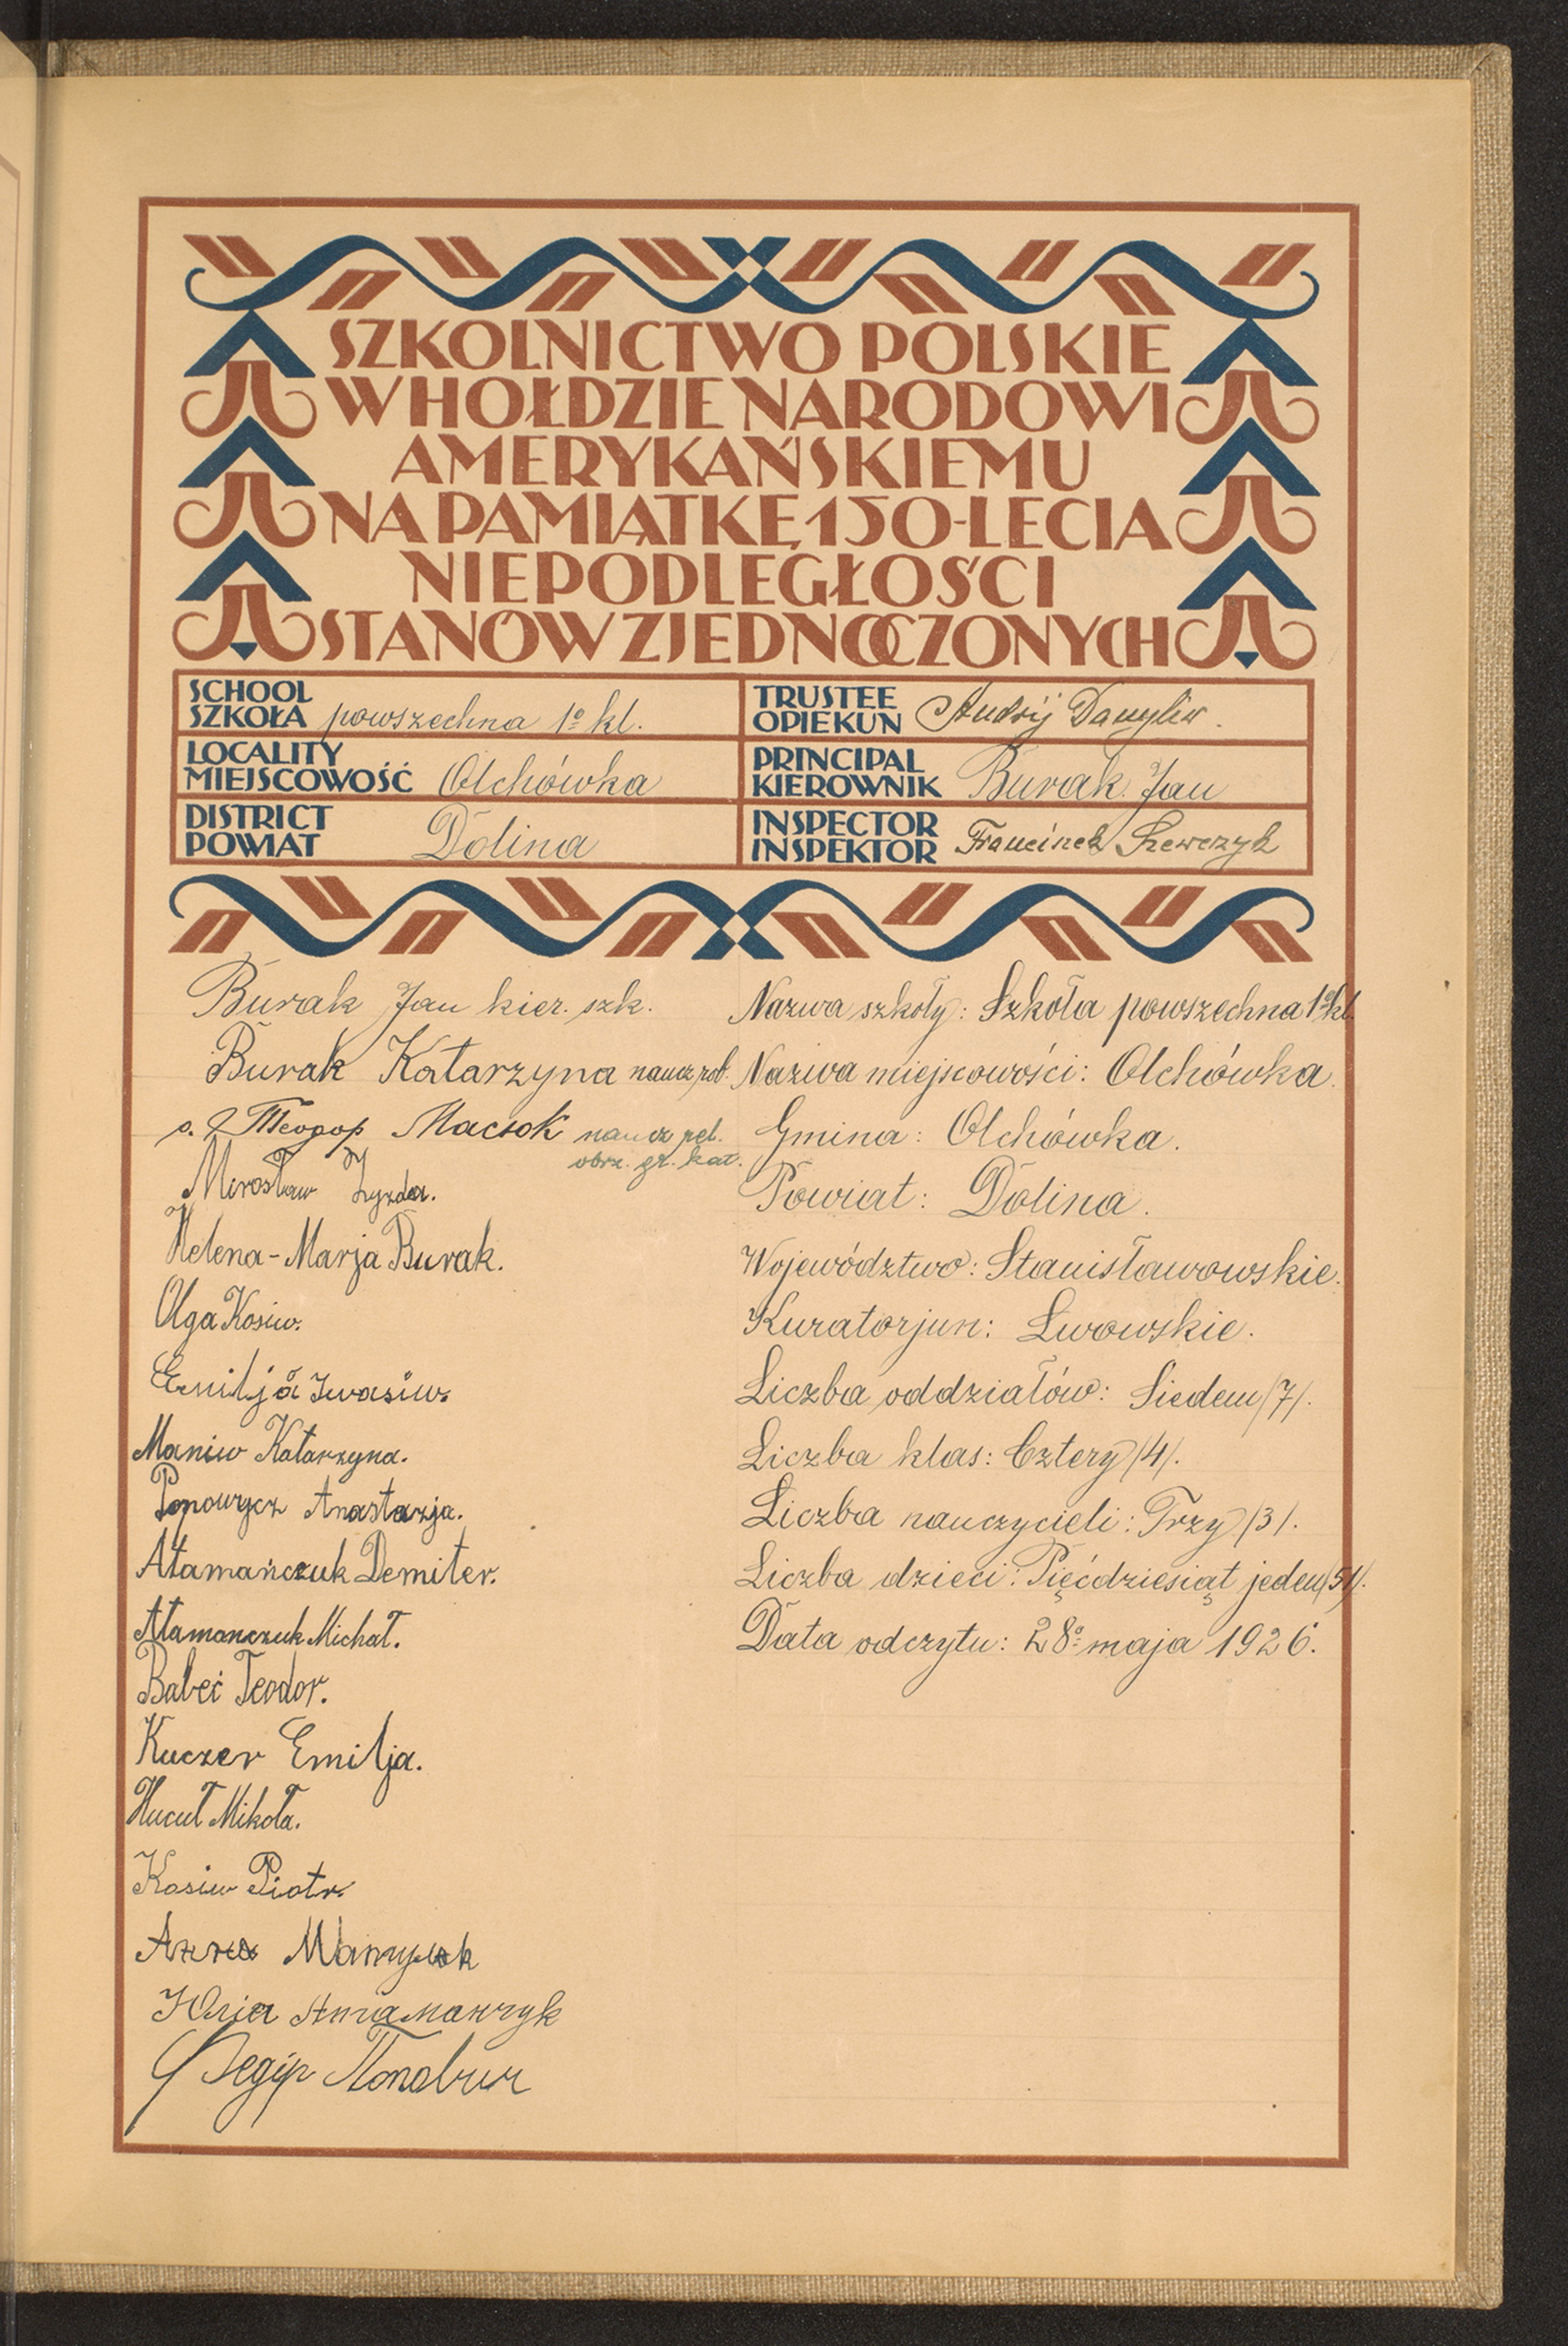 SZKOLNICTWO POLSKIE
W HOŁDZIE NARODOWI
AMERYKAŃSKIEMU
NA PAMIĄTKĘ 150-LECIA
NIEPODLEGŁOŚCI
STANÓW ZJEDNOCZONYCH
SCHOOL
SZKOŁA powszechna 1º kl.
LOCALITY
MIEJSCOWOŚĆ Olchówka
DISTRICT
POWIAT Dolina
TRUSTEE
OPIEKUN Andrij Danyliw.
PRINCIPAL
KIEROWNIK Burak Jan
INSPECTOR
INSPEKTOR Franciszek Szewczyk
Burak Jan kier. szk.
Burak Katarzyna naucz. rob.
o. Теодор Maciok naucz. rel.
obrz. gr. kat.
Mirosław Zyzda.
Helena-Marja Burak.
Olga Kosiw.
Emilja Iwasiw.
Maniw Katarzyna.
Popowycz Anastazja.
Atamańczuk Demiter.
Atamanczuk Michał.
Babeć Teodor.
Kuczer Emilja.
Hucuł Mikoła.
Kosiw Piotr.
Анна
Юлія Aтаманчук
Федір Попович
Nazwa szkoły: Szkoła powszechna 1º kl.
Nazwa miejscowości: Olchówka.
Gmina: Olchówka.
Powiat: Dolina.
Województwo: Stanisławowskie.
Kuratorjum: Lwowskie.
Liczba oddziałów: Siedem /7/.
Liczba klas: Cztery /4/.
Liczba nauczycieli: Trzy /3/.
Liczba dzieci: Pięćdziesiąt jeden /51/.
Data odczytu: 28º maja 1926.